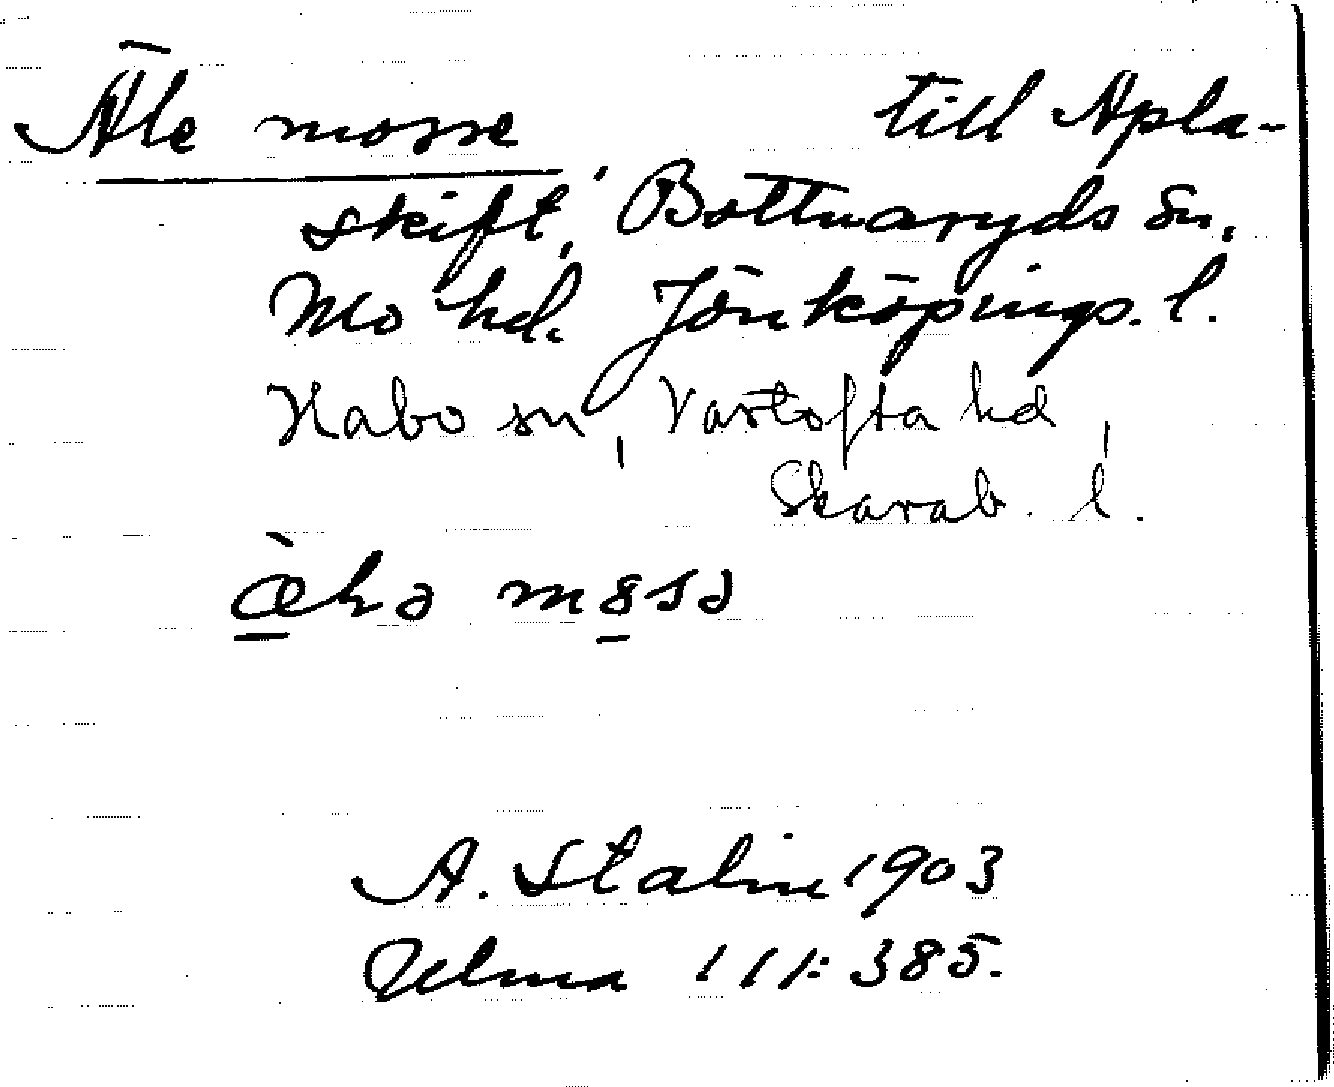 Äle mosse till Apla-
skift, Bottnaryds sn,
Mo hd. Jönköpings. l.
Habo sn, Vartofta hd,
Skarab. l.
æ̀lə m8sə
A. Stalin 1903
Ulma 111:385.